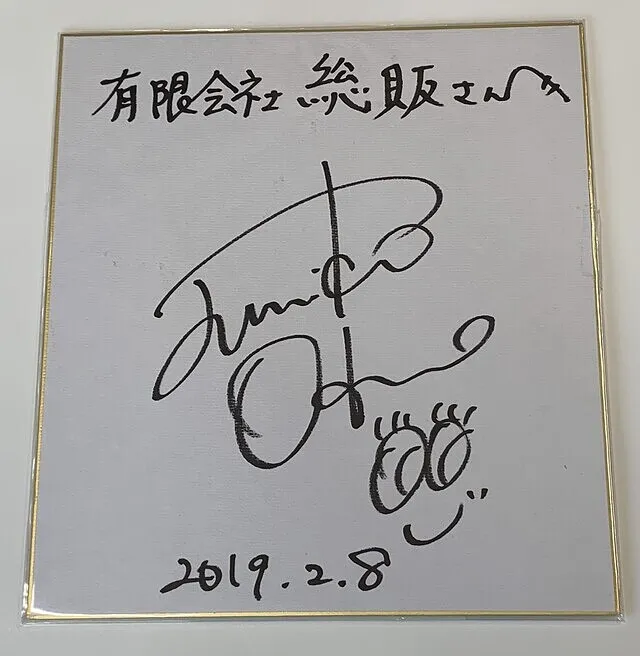 有限会社 総販さんへ
Junko
Ohno
2019.2.8